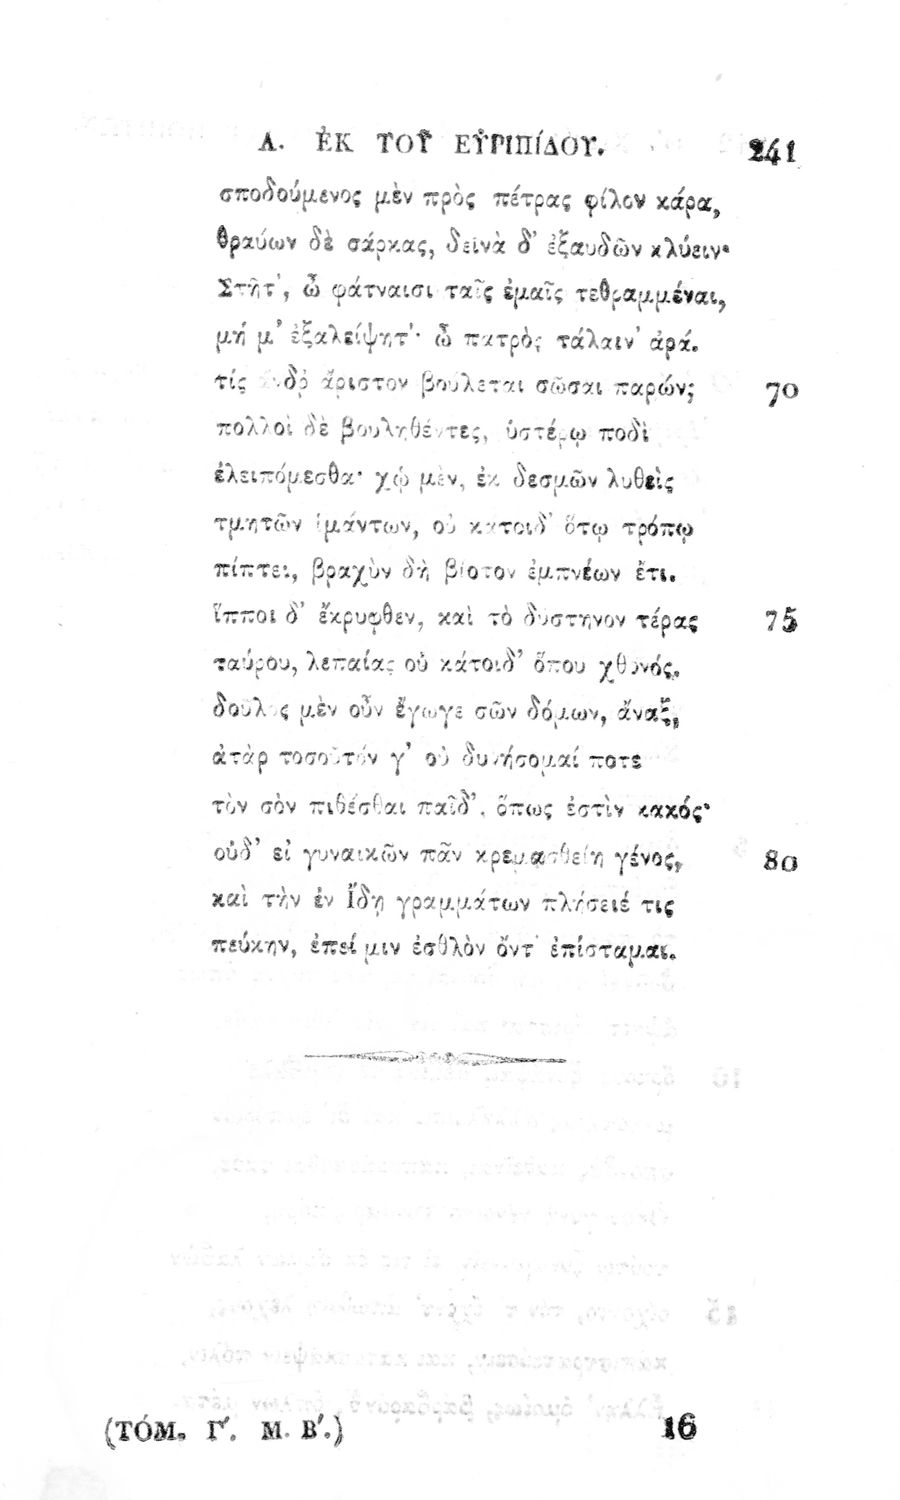 Α. ἘΚ ΤΟΥ͂ ΕΥ̓ΡΙΠΊΔΟΥ. 241
σποδούμενος μὲν πρὸς πέτρας φίλον κάρα,
θραύων δὲ σάρκας, δεινὰ δ' ἐξαυδῶν κλύειν·
Στῆτ', ὦ φάτναισι ταῖς ἐμαῖς τεθραμμέναι,
μή μ' ἐξαλείψητ'· ὦ πατρὸς τάλαιν' ἀρά.
τίς ἄνδρ' ἄριστον βούλεται σῶσαι παρών; 70
πολλοὶ δὲ βουληθέντες, ὑστέρῳ ποδὶ
ἐλειπόμεσθα· χᾠ μὲν, ἐκ δεσμῶν λυθεὶς
τμητῶν ἱμάντων, οὐ κατοιδ' ὅτῳ τρόπῳ
πίπτει, βραχὺν δὴ βίοτον ἐμπνέων ἔτι.
ἵπποι δ' ἔκρυφθεν, καὶ τὸ δύστηνον τέρας 75
ταύρου, λεπαίας οὐ κάτοιδ' ὅπου χθονός.
δοῦλος μὲν οὖν ἔγωγε σῶν δόμων, ἄναξ,
ἀτὰρ τοσοῦτόν γ' οὐ δυνήσομαί ποτε
τὸν σὸν πιθέσθαι παῖδ', ὅπως ἐστὶν κακός·
οὐδ' εἰ γυναικῶν πᾶν κρεμασθείη γένος, 80
καὶ τὴν ἐν Ἴδῃ γραμμάτων πλήσειέ τις
πεύκην, ἐπεί μιν ἐσθλὸν ὄντ' ἐπίσταμαι.
(ΤΌΜ. Γ'. Μ. Β'.) 16